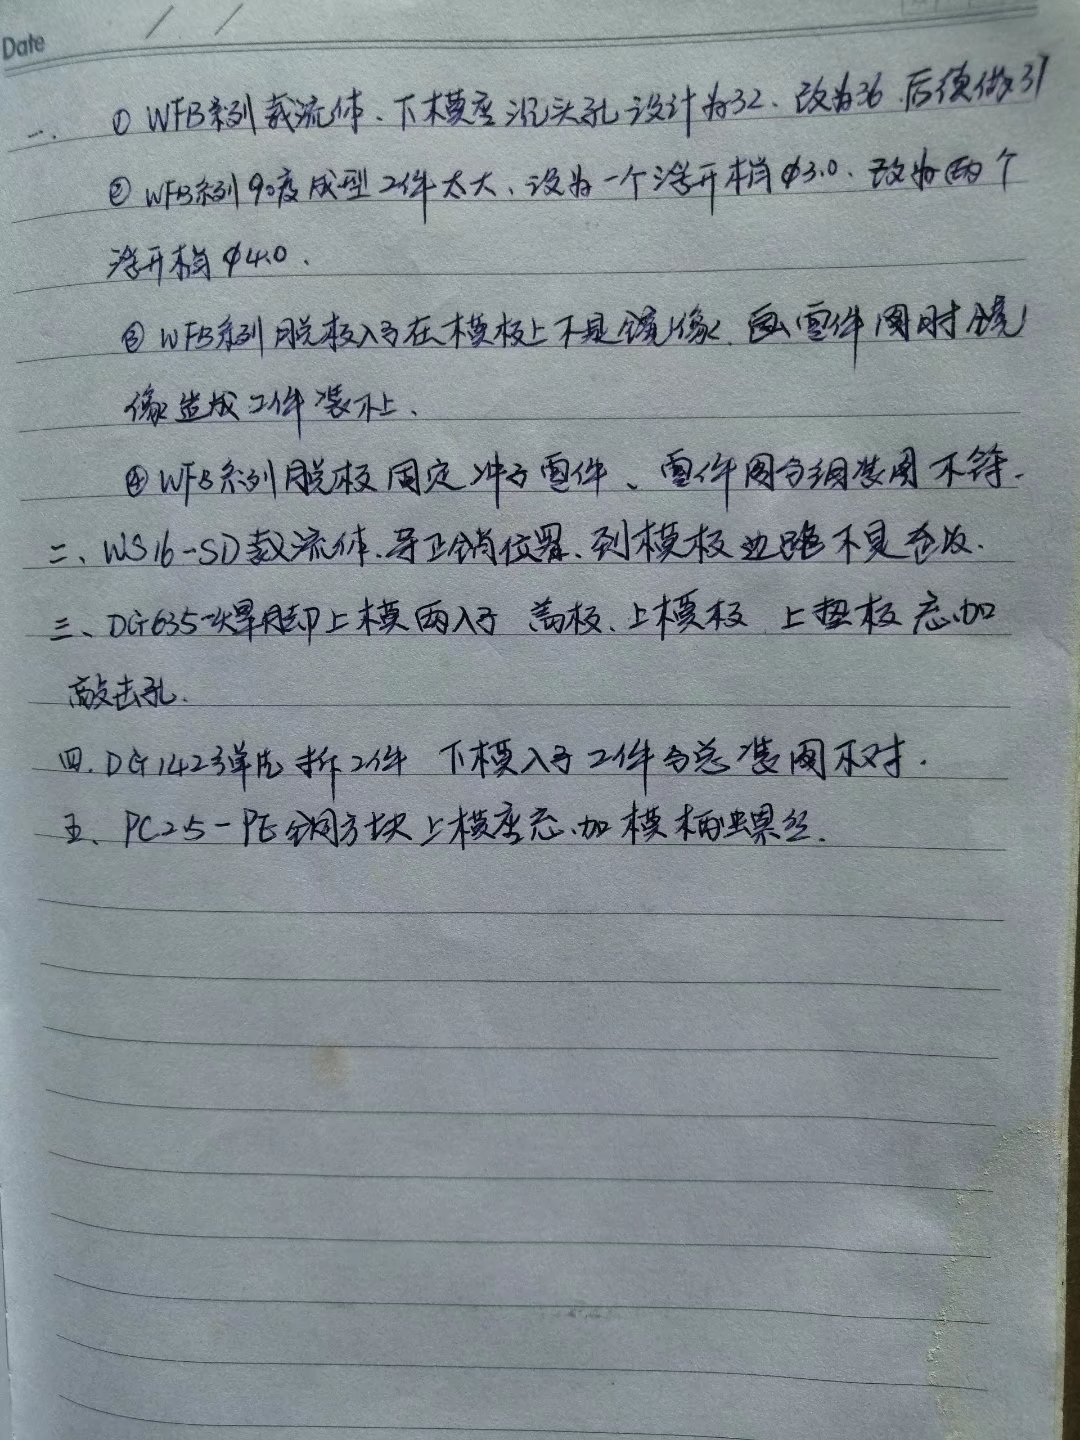 Date / /
一. ① WFB系列载流体、下模座沉头孔设计为32、改为36. 后续做31
② WFB系列90度成型工件太大、设为一个浮升梢φ3.0、改为两个
浮升梢φ4.0.
③ WFB系列脱板入子在模板上不是镜像. 画零件图时镜
像造成工件装不上.
④ WFB系列脱板固定冲子零件、零件图与组装图不符.
二、WS16-SD载流体、导正销位置、到模板边距不是
三、DG635-焊脚上模两入子 盖板、上模板 上垫板忘加
敲击孔.
四. DG1423单片拆工件 下模入子工件与总装图不对.
五、PC25-PE铜方块上模座忘加模柄螺丝.